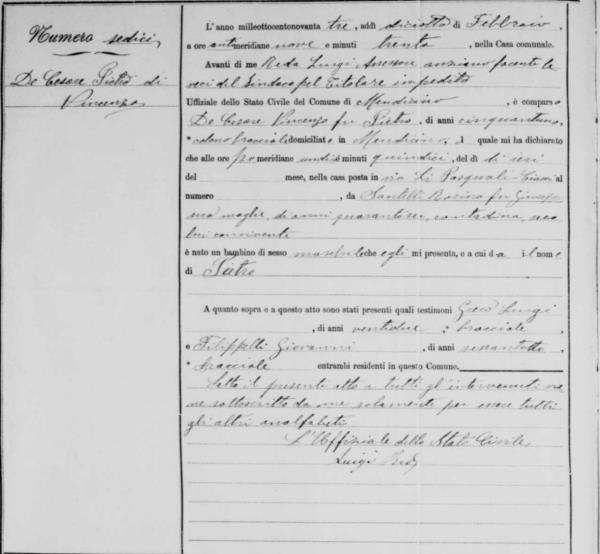 Numero sedici
De Cesare Pietro di
Vincenzo
L'anno milleottocentonovanta tre, addì diciotto di Febbraio,
a ore antimeridiane nove e minuti trenta, nella Casa comunale.
Avanti di me Reda Luigi Assessore anziano facente le
veci del Sindaco pel titolare impedito
Uffiziale dello Stato Civile del Comune di Mendicino, è comparso
De Cesare Vincenzo fu Pietro, di anni cinquantuno,
colono bracciale domiciliato in Mendicino, il quale mi ha dichiarato
che alle ore pomeridiane undici e minuti quindici, del dì di ieri
del mese, nella casa posta in via Li Pasquali al
numero , da Santelli Rosina fu Giuseppe
sua moglie, di anni quarantasei, contadina, seco
lui convivente
è nato un bambino di sesso maschile che egli mi presenta, e a cui dà il nome
di Pietro
A quanto sopra e a questo atto sono stati presenti quali testimoni Greco Luigi
, di anni ventidue, bracciale
e Filippelli Giovanni, di anni sessantotto,
bracciale entrambi residenti in questo Comune.
Letto il presente atto a tutti gl'intervenuti vie
ne sottoscritto da me solamente per essere tutti
gli altri analfabeti
L'Uffiziale dello Stato Civile
Luigi Reda